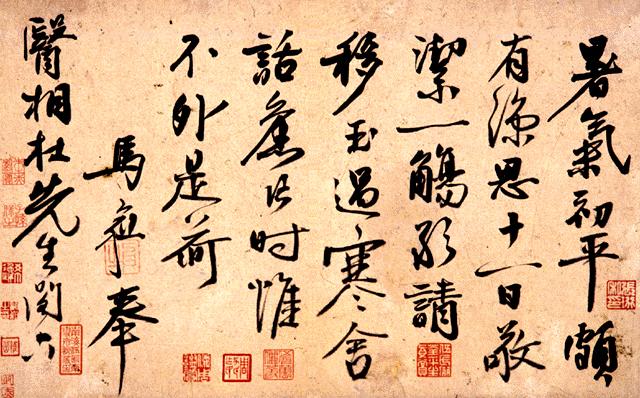 暑氣初平頗
有涼思十一日敬
潔一觴敢請
移玉過寒舍
話舊片時惟
不外是荷
馬琬奉
醫相杜先生閣下